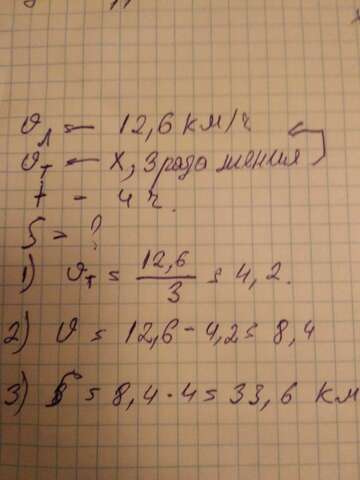 υл = 12,6 км/ч
υт — x, 3 раза меньше
t - 4 ч.
S = ?
1) υт = 12,6/3 = 4,2.
2) υ = 12,6 - 4,2 = 8,4
3) S = 8,4 · 4 = 33,6 км